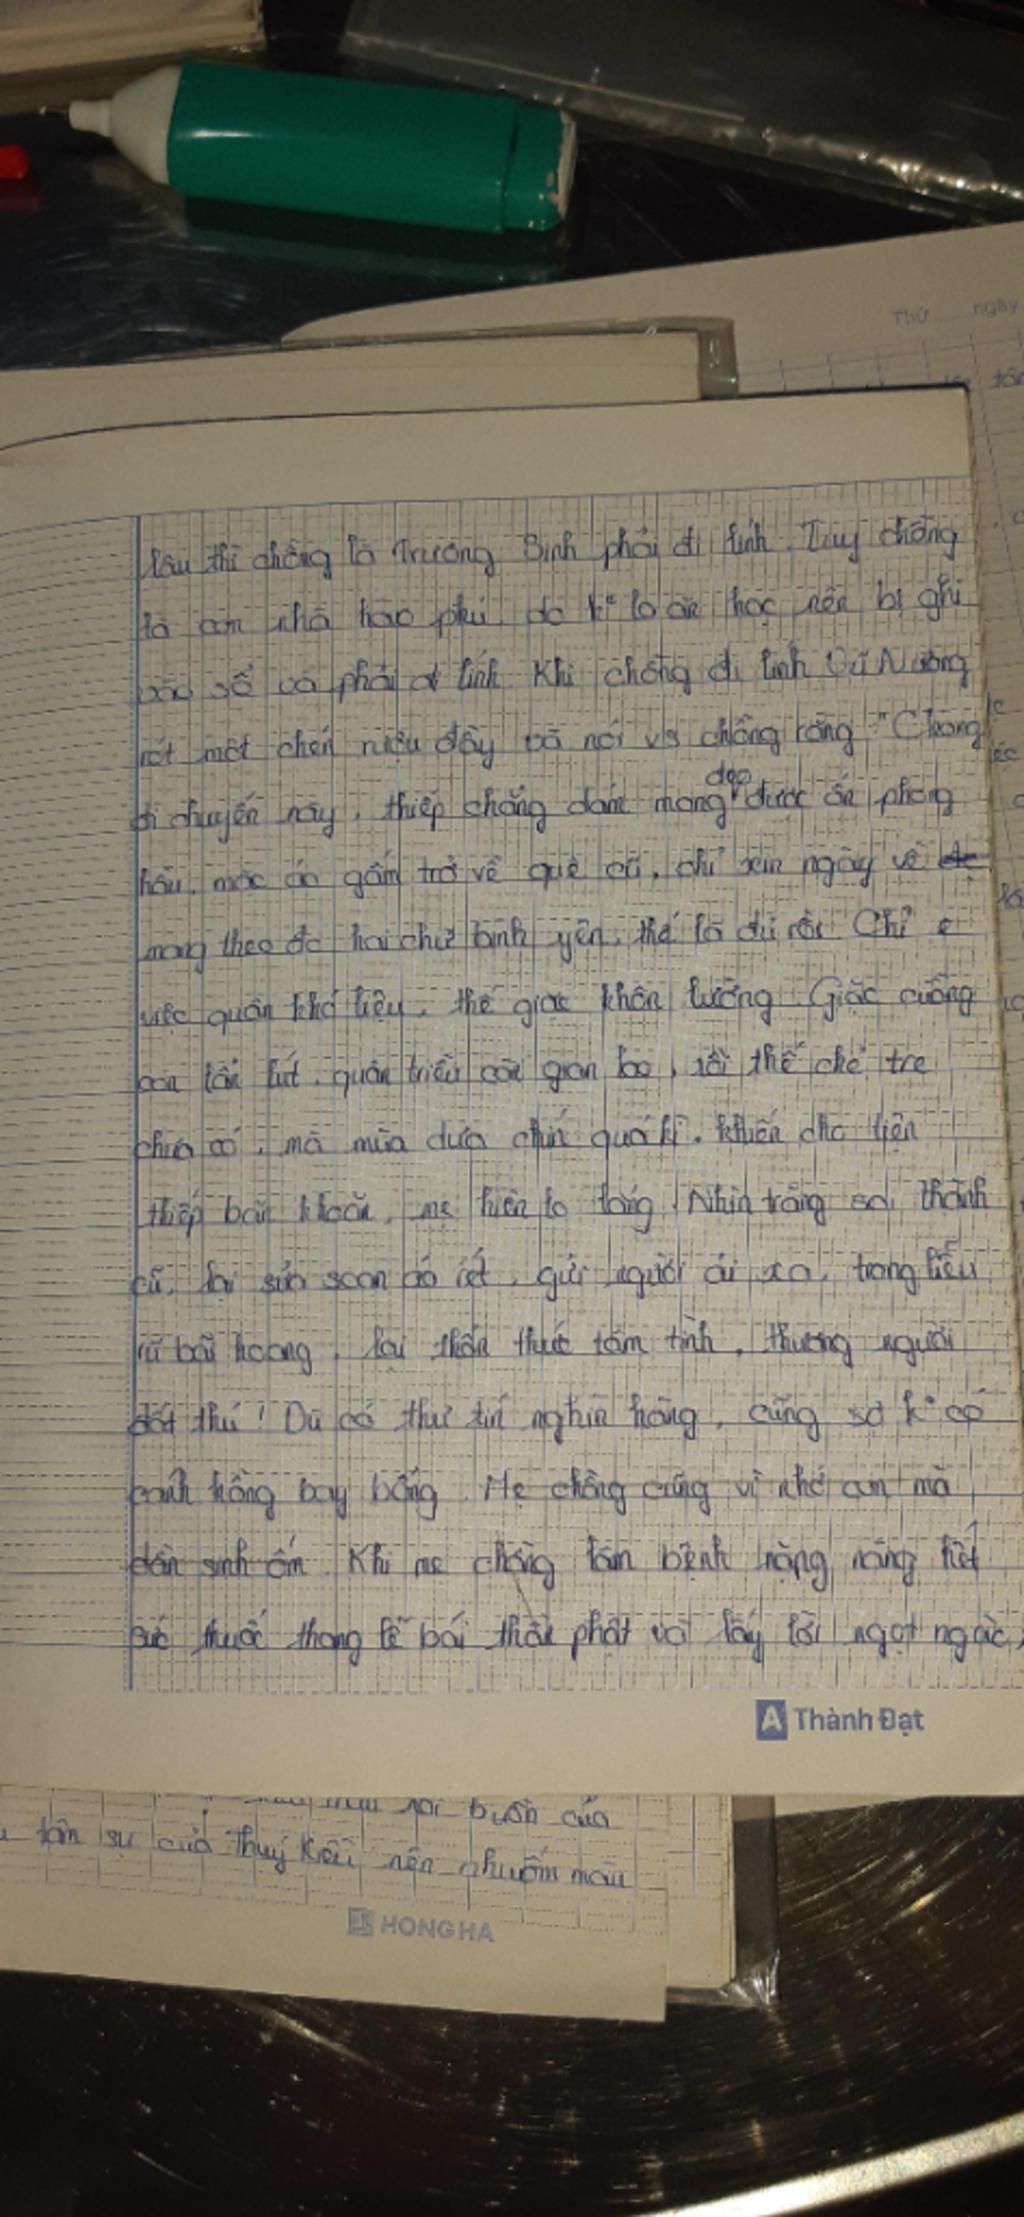 Thứ ..... ngày
lâu thì chồng là Trương Sinh phải đi lính. Tuy chồng
là con nhà hào phú do k° lo ăn học nên bị ghi
vào sổ và phải đi lính. Khi chồng đi lính Vũ Nương
rót một chén rượu đầy và nói vs chồng rằng "Chàng
đi chuyến này, thiếp chẳng dám mong đeo được ấn phong
hầu, mặc áo gấm trở về quê cũ, chỉ xin ngày về
mang theo đc hai chữ bình yên, thế là đủ rồi. Chỉ e
việc quân khó liệu, thế giặc khôn lường. Giặc cuồng
còn lẩn lút, quân triều còn gian lao, rồi thế chẻ tre
chưa có, mà mùa dưa chín quá kì, khiến cho tiện
thiếp băn khoăn, mẹ hiền lo lắng. Nhìn trăng soi thành
cũ, lại sửa soạn áo rét, gửi người ải xa, trông liễu
rũ bãi hoang, lại thổn thức tâm tình, thương người
đất thú! Dù có thư tín nghìn hàng, cũng sợ k° có
cánh hồng bay bổng. Mẹ chồng cũng vì nhớ con mà
dần sinh ốm. Khi mẹ chồng lâm bệnh nặng nàng hết
sức thuốc thang lễ bái thần phật và lấy lời ngọt ngào,
A Thành Đạt
nỗi buồn của
tâm sự của Thuý Kiều nên nhuốm màu
HONG HA